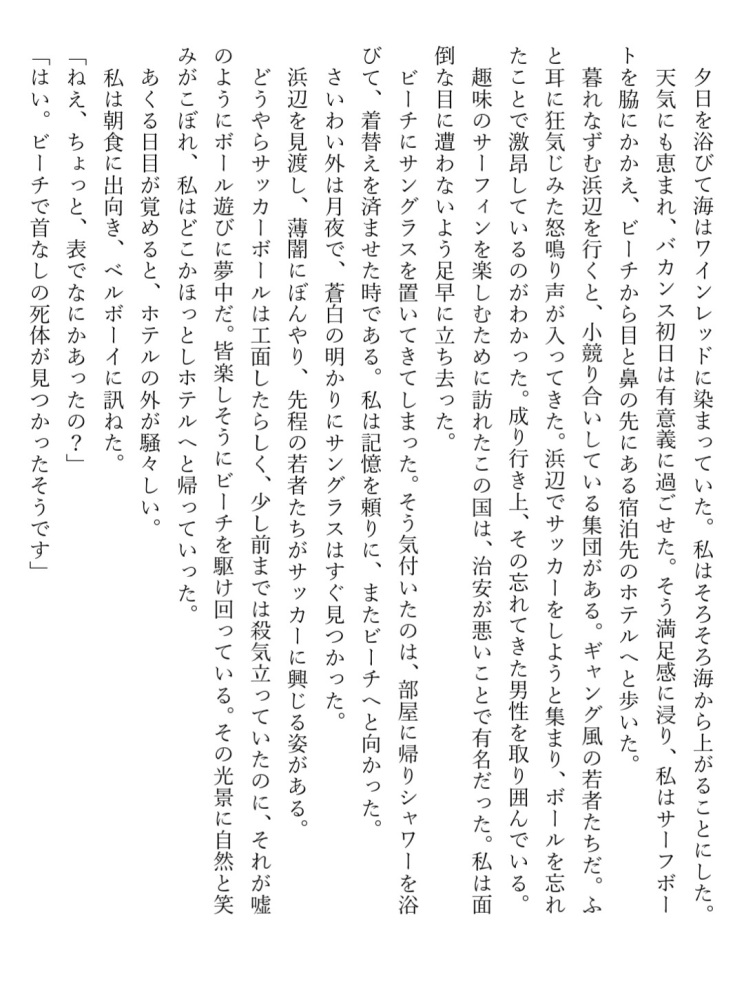 夕日を浴びて海はワインレッドに染まっていた。私はそろそろ海から上がることにした。
　天気にも恵まれ、バカンス初日は有意義に過ごせた。そう満足感に浸り、私はサーフボー
トを脇にかかえ、ビーチから目と鼻の先にある宿泊先のホテルへと歩いた。
　暮れなずむ浜辺を行くと、小競り合いしている集団がある。ギャング風の若者たちだ。ふ
と耳に狂気じみた怒鳴り声が入ってきた。浜辺でサッカーをしようと集まり、ボールを忘れ
たことで激昂しているのがわかった。成り行き上、その忘れてきた男性を取り囲んでいる。
　趣味のサーフィンを楽しむために訪れたこの国は、治安が悪いことで有名だった。私は面
倒な目に遭わないよう足早に立ち去った。
　ビーチにサングラスを置いてきてしまった。そう気付いたのは、部屋に帰りシャワーを浴
びて、着替えを済ませた時である。私は記憶を頼りに、またビーチへと向かった。
　さいわい外は月夜で、蒼白の明かりにサングラスはすぐ見つかった。
　浜辺を見渡し、薄闇にぼんやり、先程の若者たちがサッカーに興じる姿がある。
　どうやらサッカーボールは工面したらしく、少し前までは殺気立っていたのに、それが嘘
のようにボール遊びに夢中だ。皆楽しそうにビーチを駆け回っている。その光景に自然と笑
みがこぼれ、私はどこかほっとしホテルへと帰っていった。
　あくる日目が覚めると、ホテルの外が騒々しい。
　私は朝食に出向き、ベルボーイに訊ねた。
「ねえ、ちょっと、表でなにかあったの？」
「はい。ビーチで首なしの死体が見つかったそうです」